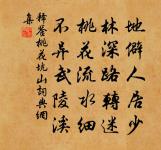 地僻人居少
林深路轉迷
桃花流水細
不异武陵溪
桃花坑山詞典網
集